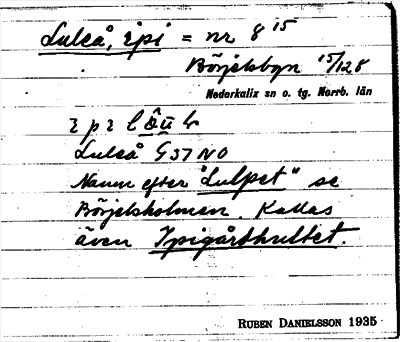 Luleå, ipi = nr 8 15
Börjelsbyn 15/128
Nederkalix sn o. tg. Norrb. län
Luleå G 57 NO
Namn efter "Lulpet" se
Börjelsholmen. Kallas
även Ipigårdhultet.
RUBEN DANIELSSON 1935